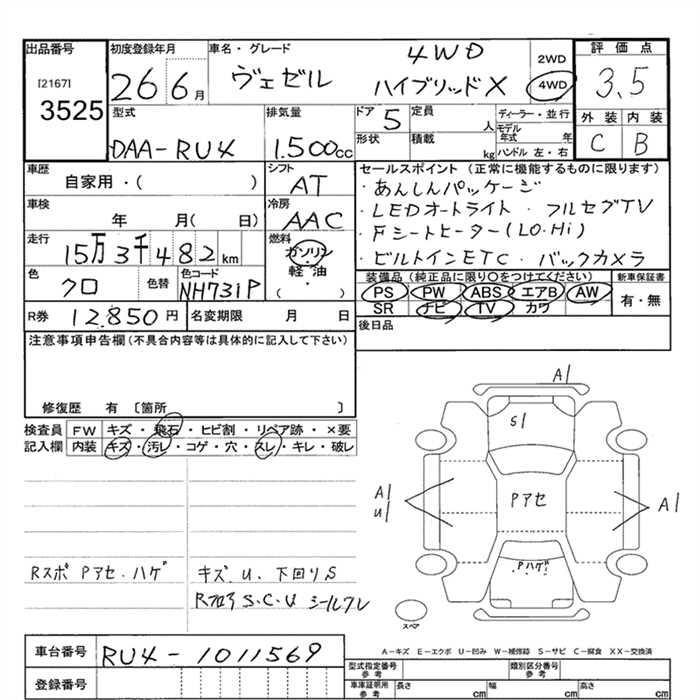 出品番号 初度登録年月 車名・グレード 4WD 2WD 評価点
[2167] 26 6月 ヴェゼル ハイブリッドX 4WD 3.5
3525
型式 排気量 ドア 5 定員 人 ディーラー・並行 外装 内装
DAA-RU4 1.500cc 形状 積載 kg モデル年式 年 C B
ハンドル 左・右
車歴 シフト セールスポイント (正常に機能するものに限ります)
自家用・( ) AT ・あんしんパッケージ
車検 冷房 ・LEDオートライト・フルセグTV
年 月( 日) AAC ・Fシートヒーター(LO.Hi)
走行 燃料 ・ビルトインETC・バックカメラ
15万3千482km ガソリン
軽油
( )
色 色替 色コード 装備品 (純正品に限り○をつけてください) 新車保証書
クロ NH731P PS PW ABS エアB AW 有・無
SR ナビ TV カワ
R券 12.850円 名変期限 月 日 後日品
注意事項申告欄 (不具合内容等は具体的に記入して下さい)
修復歴 有 〔箇所 〕
検査員 FW キズ・飛石・ヒビ割・リペア跡・×要
記入欄 内装 キズ・汚レ・コゲ・穴・スレ・キレ・破レ
A1
S1
A1
U1
Pアセ
A1
Pハゲ
スペア
Rスポ Pアセ・ハゲ キズ U. 下回りS
Rフロア S.C.U シールワレ
A-キズ E-エクボ U-凹み W-補修跡 S-サビ C-腐食 XX-交換済
車台番号 RU4-1011569
登録番号
型式指定番号 参考 類別区分番号 参考
車庫証明用 参考 長さ cm 幅 cm 高さ cm